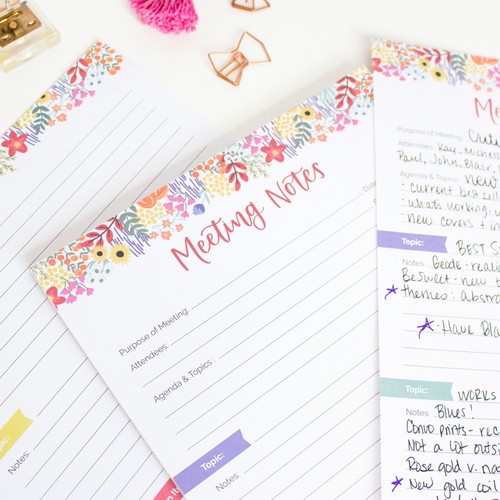 Topic:
Notes:
Meeting Notes
Date
Purpose of Meeting:
Attendees:
Agenda & Topics :
Topic:
Purpose of Meeting:
Attendees: Kay, Michel
Paul, John, Blair,
Agenda & Topics: new
· current best sell
· whats working
new covers + in
Topic:
BEST S
Notes: Geode - reali
BeSweet - new t
themes: Abstra
· Have Bla
Topic:
WORKS
Notes: Blues!
Convo prints - rec
Not a lot outsi
Rose gold v. na
New gold coil